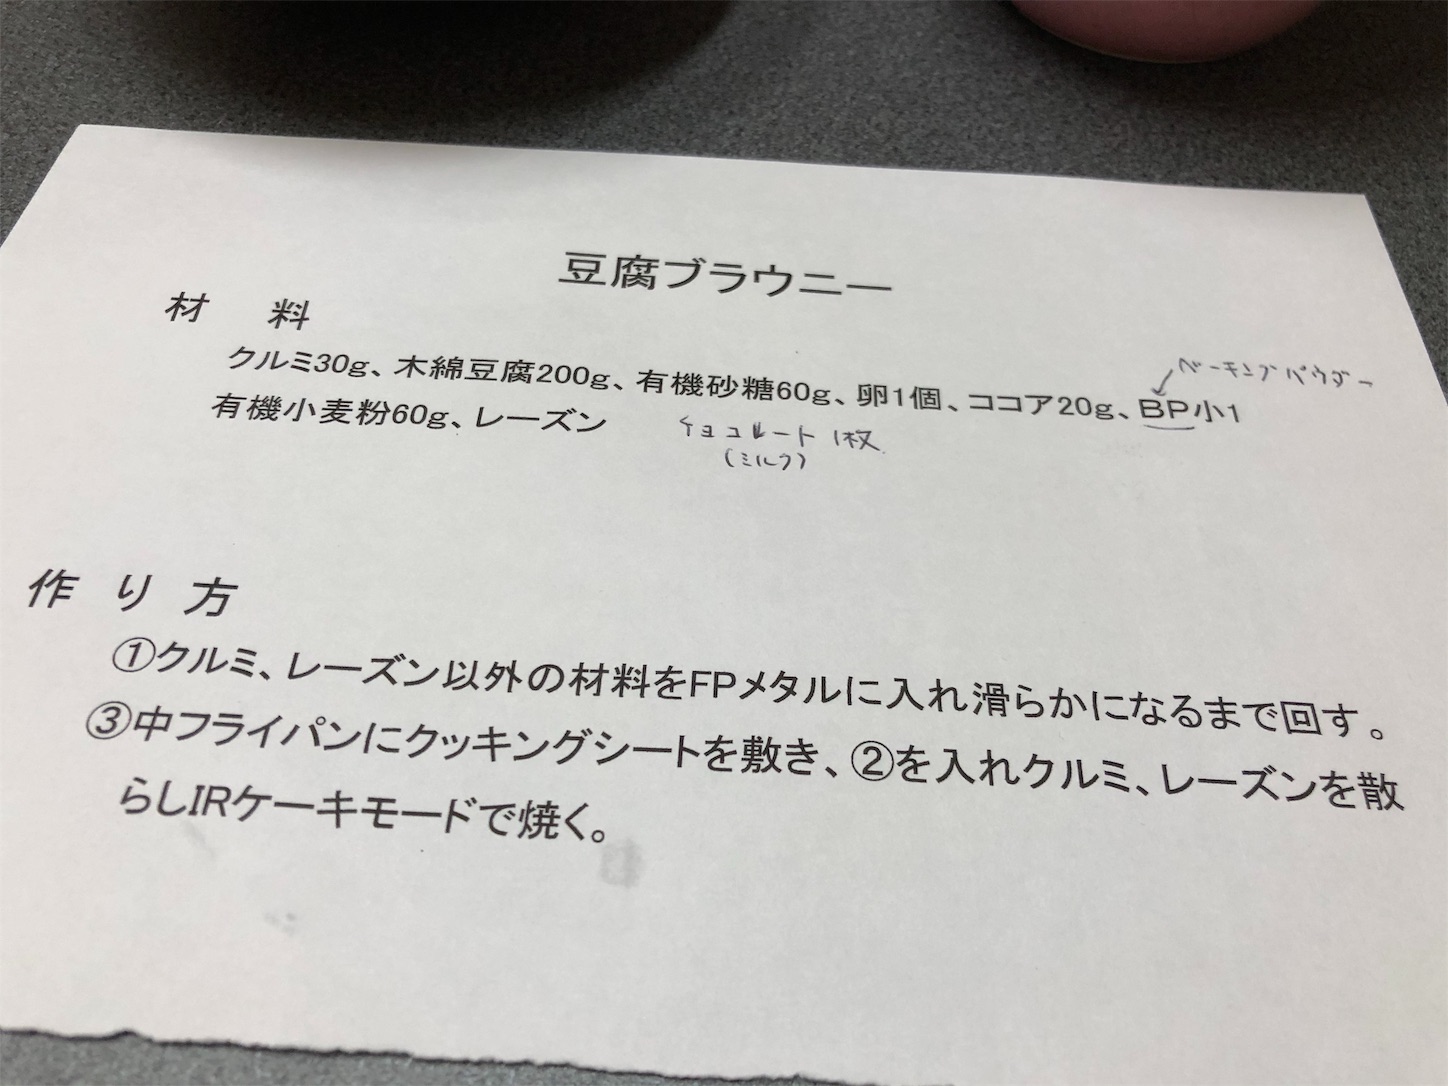 豆腐ブラウニー
材　料
クルミ30g、木綿豆腐200g、有機砂糖60g、卵1個、ココア20g、BP小1
ベーキングパウダー
有機小麦粉60g、レーズン
チョコレート 1枚
(ミルク)
作り方
①クルミ、レーズン以外の材料をFPメタルに入れ滑らかになるまで回す。
③中フライパンにクッキングシートを敷き、②を入れクルミ、レーズンを散
らしIRケーキモードで焼く。